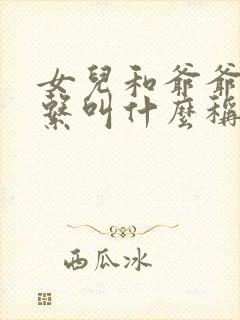 女兒和爺爺
繫叫什麼稱
西瓜冰